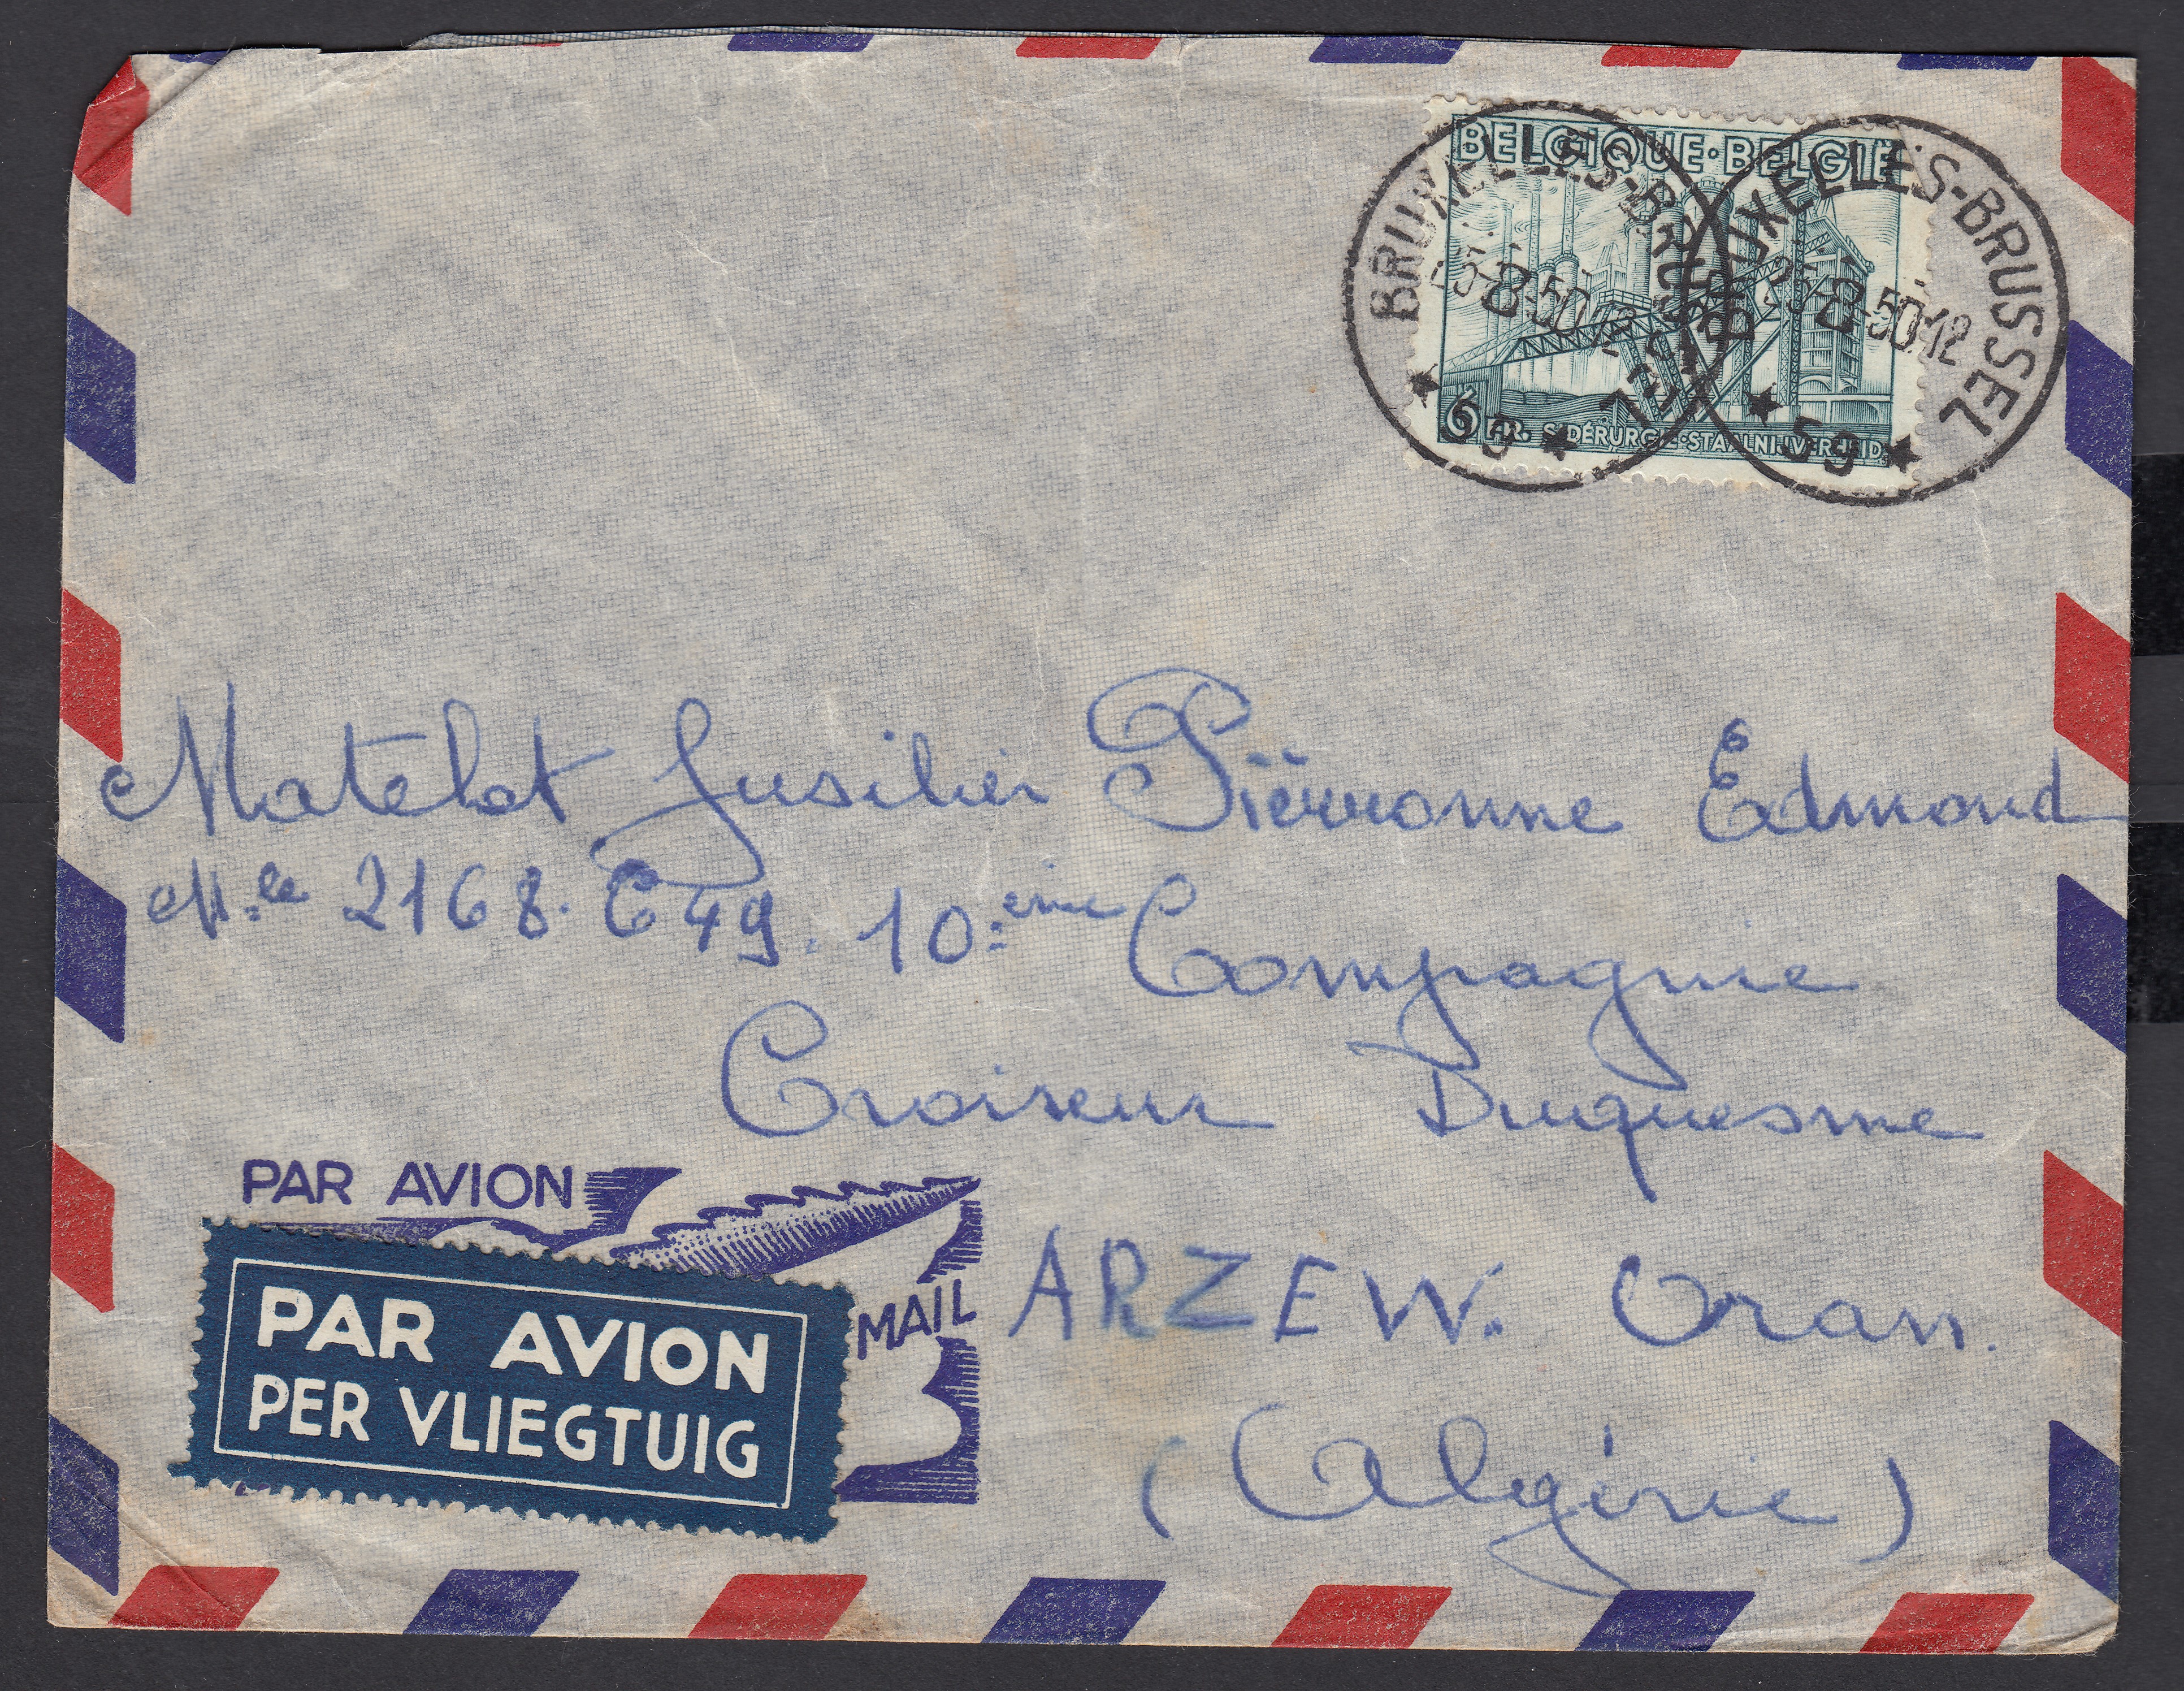 BELGIQUE·BELGIË
BRUXELLES-BRUSSEL
-8-50 12
59
BRUXELLES-BRUSSEL
-8-50 12
59
6 FR. SIDÉRURGIE·STAALNIJVERHEID
Matelot fusilier Piërronne Edmond
Mle 2168.C49. 10:eme Compagnie
Croiseur Duquesne
PAR AVION
MAIL
ARZEW. Oran.
PAR AVION
PER VLIEGTUIG
(Algérie)